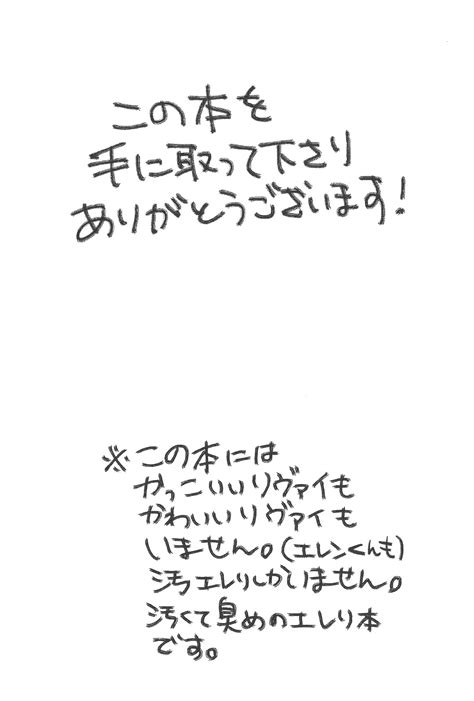 この本を
手に取って下さり
ありがとうございます!
※この本には
かっこいいリヴァイも
かわいいリヴァイも
いません。(エレンくんも)
汚エレリしかいません。
汚くて臭めのエレリ本
です。